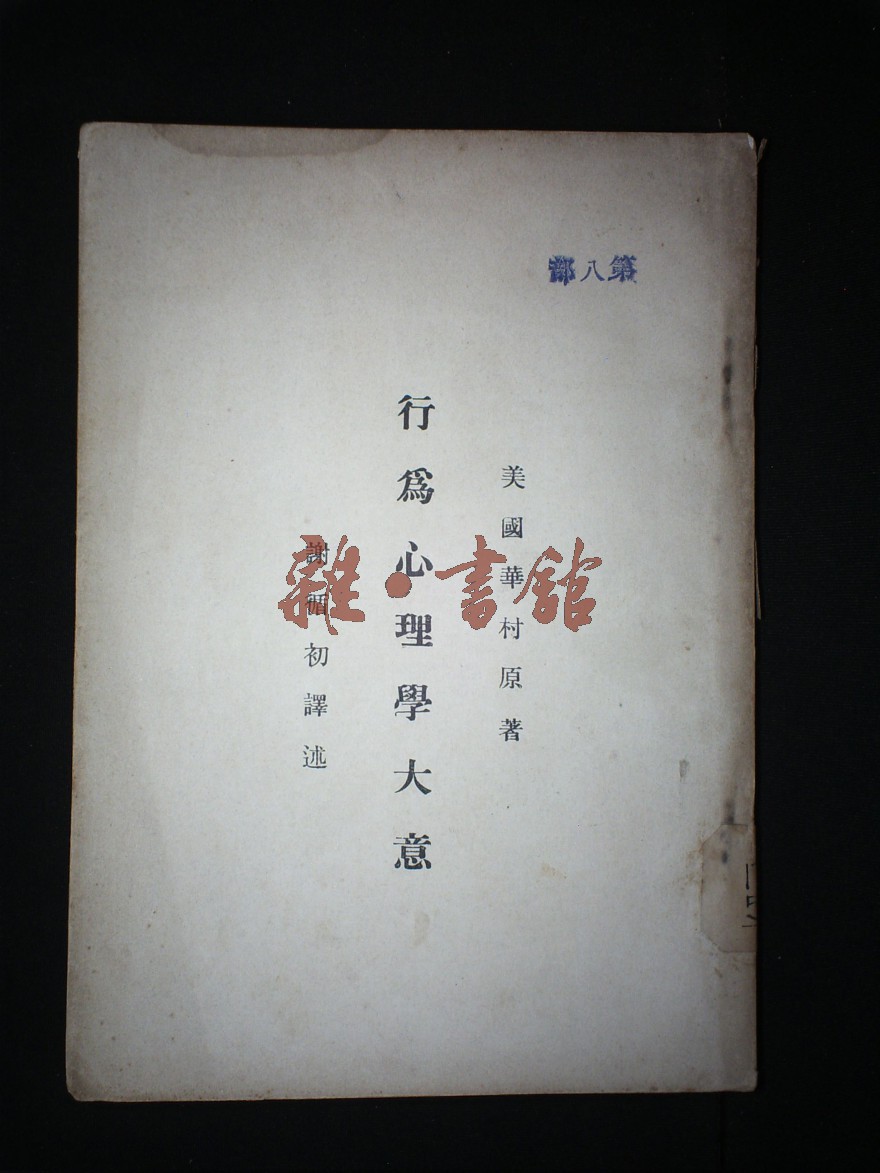 第八部
美國華村原著
行爲心理學大意
謝循初譯述
雜·書館